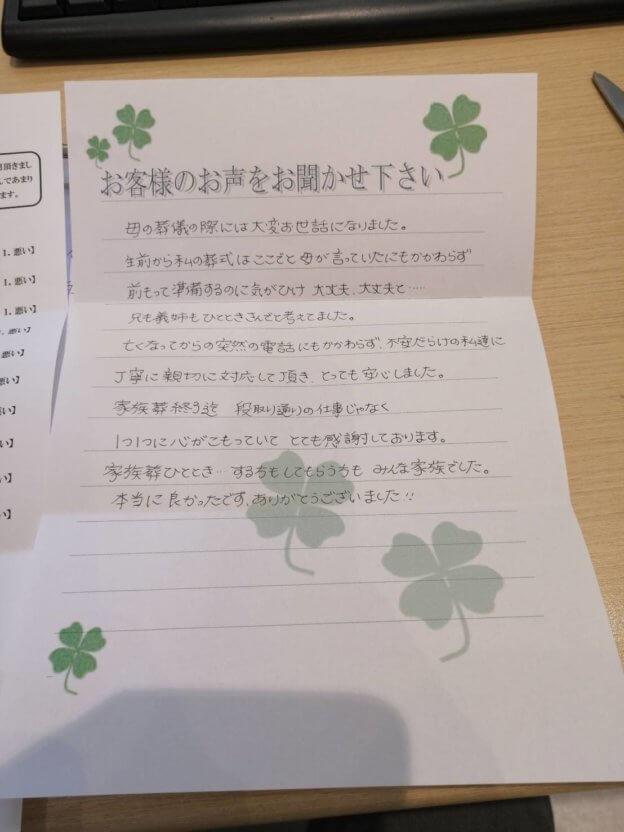 お客様のお声をお聞かせ下さい
母の葬儀の際には大変お世話になりました。
生前から私の葬式はここでと母が言っていたにもかかわらず
前もって準備するのに気がひけ 大丈夫、大丈夫と……
兄も義姉もひとときさんでと考えてました。
亡くなってからの突然の電話にもかかわらず、不安だらけの私達に
丁寧に親切に対応して頂き、とっても安心しました。
家族葬終る迄 段取り通りの仕事じゃなく
1つ1つに心がこもっていて とても感謝しております。
家族葬ひととき…する方もしてもらう方も みんな家族でした。
本当に良かったです、ありがとうございました!!
頂きまし
であまり
ます。
1. 悪い】
1. 悪い】
1. 悪い】
1. 悪い】
悪い】
悪い】
い】
い】
い】
い】